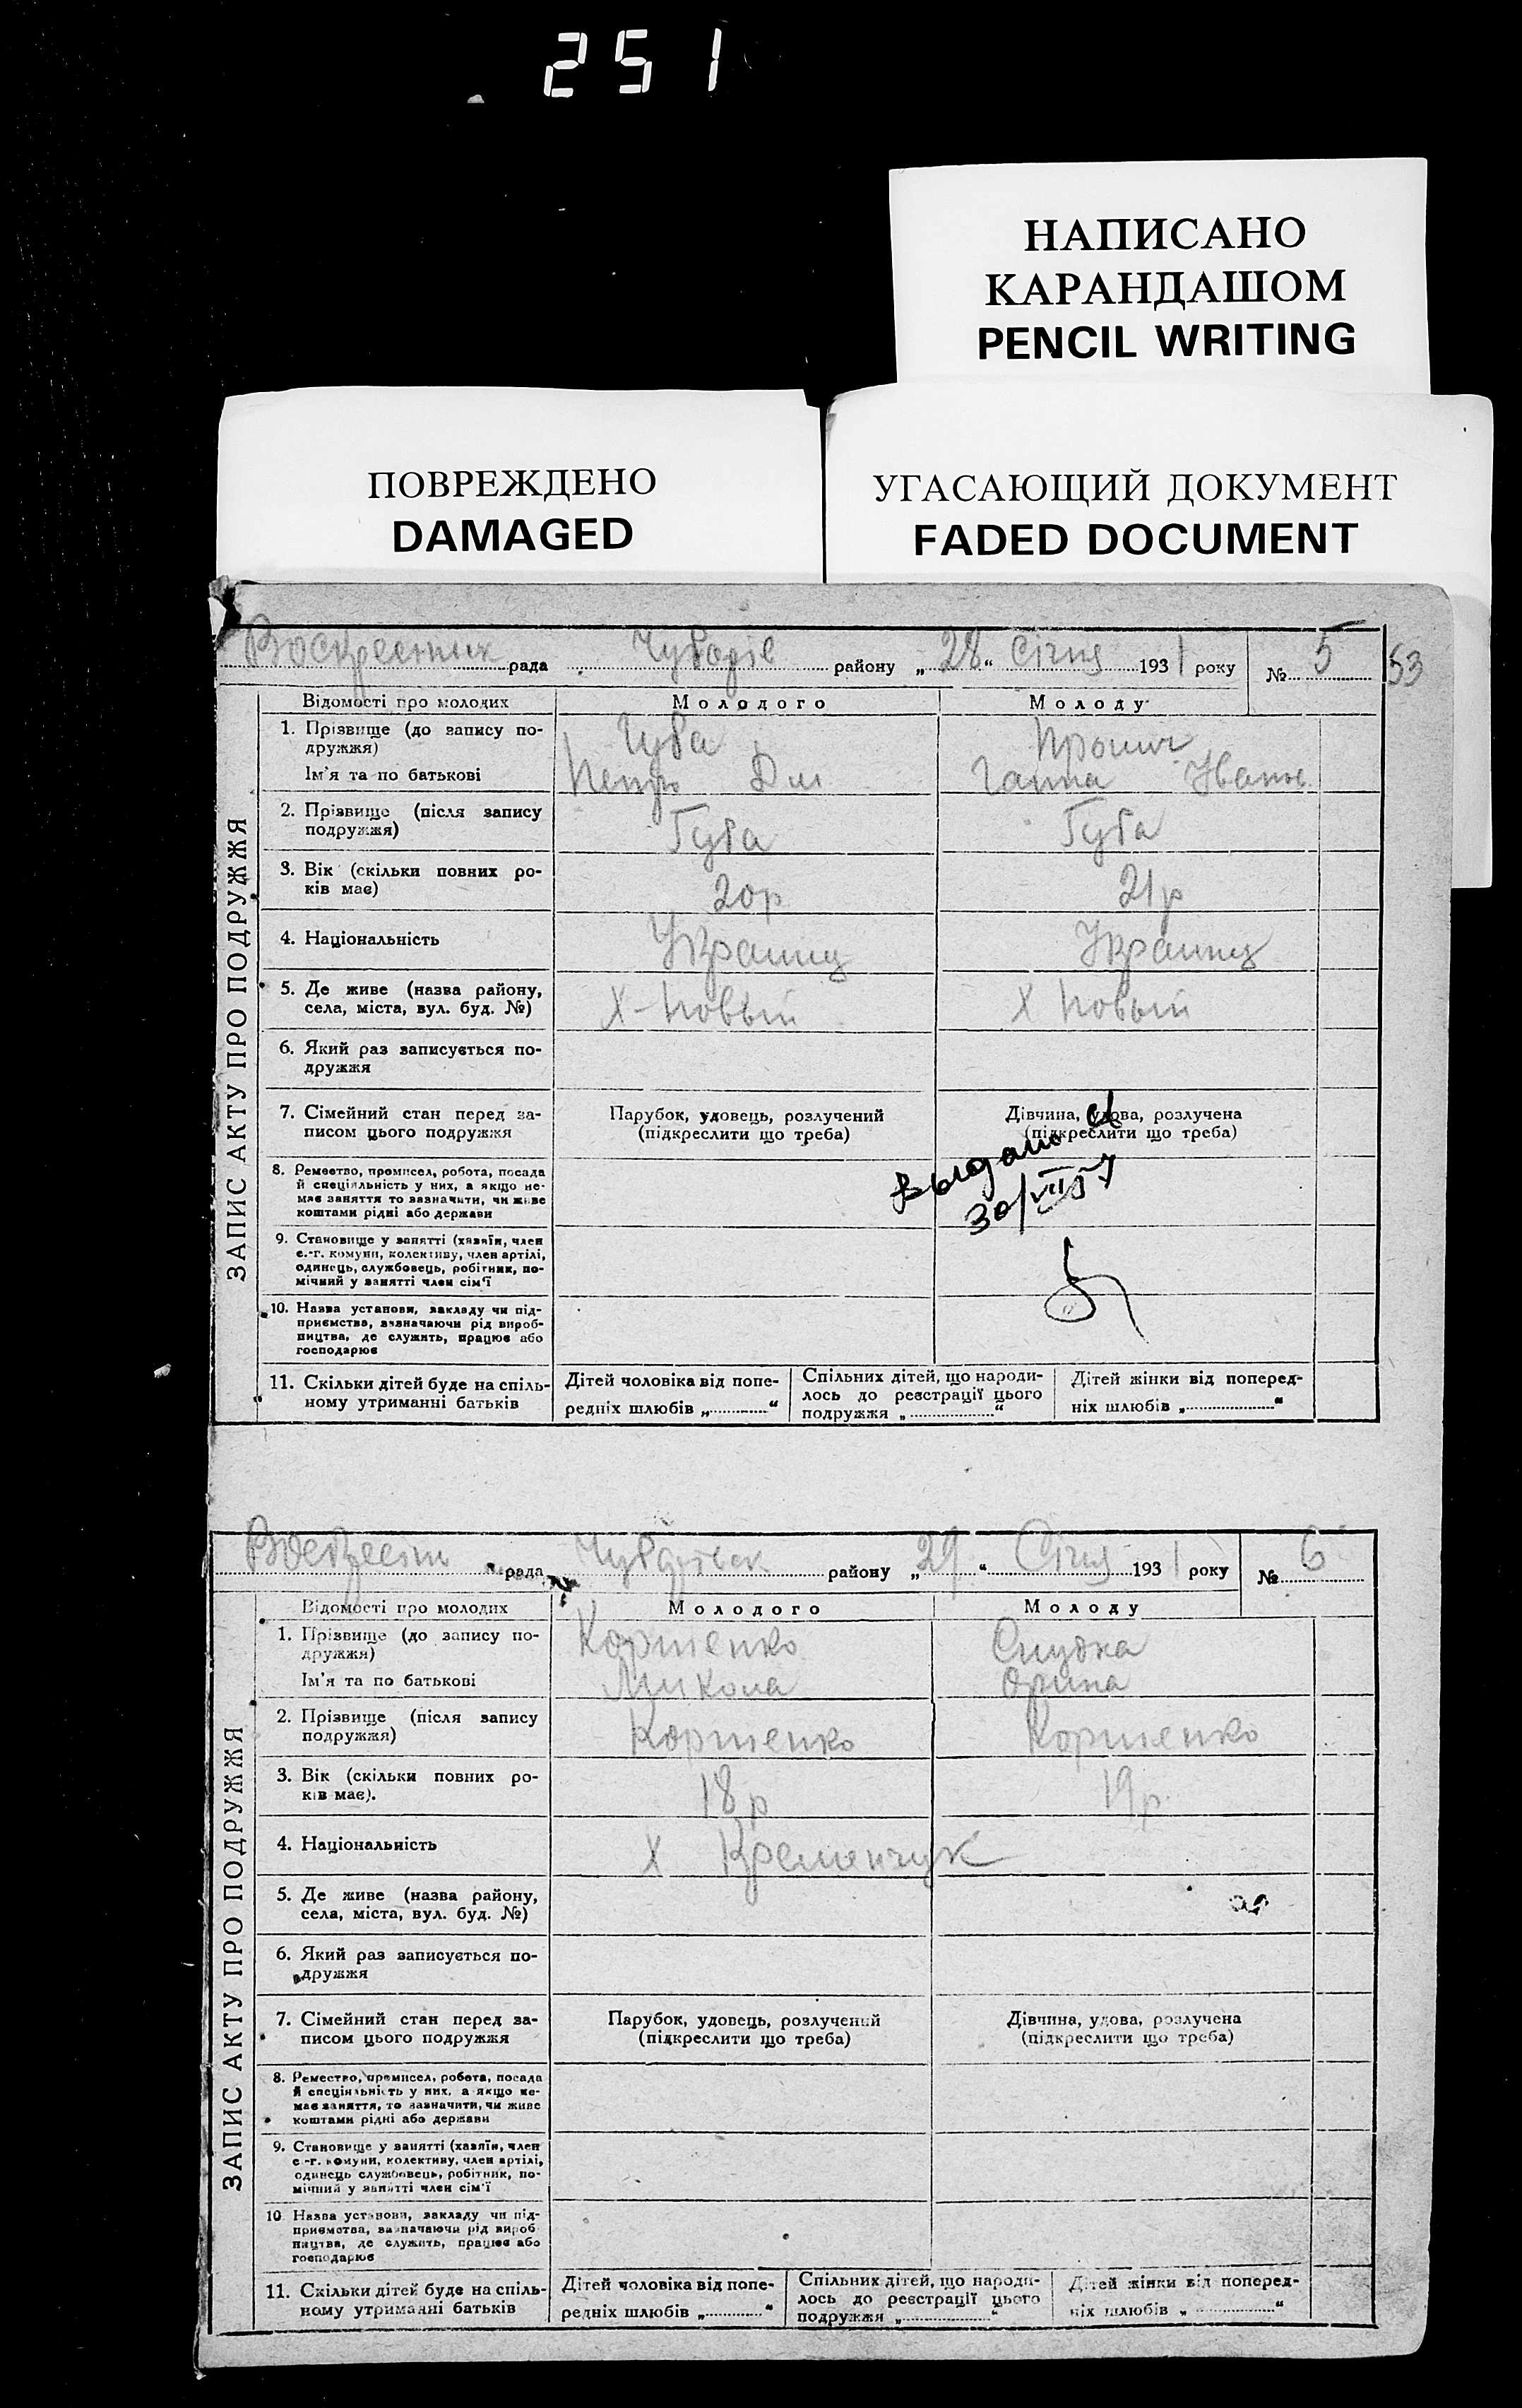 251
НАПИСАНО
КАРАНДАШОМ
PENCIL WRITING
ПОВРЕЖДЕНО
DAMAGED
УГАСАЮЩИЙ ДОКУМЕНТ
FADED DOCUMENT
рада району „28“ Січня 1931 року № 5 53
ЗАПИС АКТУ ПРО ПОДРУЖЖЯ
Відомості про молодих Молодого Молоду
1. Прізвище (до запису по-
дружжя)
Ім'я та по батькові Петро Ганна
2. Прізвище (після запису
подружжя) Губа Губа
3. Вік (скільки повних ро-
ків має) 20р 21р
4. Національність Украинц Украинц
5. Де живе (назва району,
села, міста, вул. буд. №) Х-Новый Х Новый
6. Який раз записується по-
дружжя
7. Сімейний стан перед за-
писом цього подружжя
Парубок, удовець, розлучений
(підкреслити що треба)
Дівчина, удова, розлучена
(підкреслити що треба)
Выдано
30/VII 57
8. Ремество, промисел, робота, посада
й спеціяльність у них, а якщо не-
має заняття то зазначити, чи живе
коштами рідні або держави
9. Становище у занятті (хазяїн, член
с.-г. комуни, колективу, член артілі,
одинець, службовець, робітник, по-
мічний у занятті член сім'ї
10. Назва установи, закладу чи під-
приємства, зазначаючи рід вироб-
ництва, де служить, працює або
господарює
11. Скільки дітей буде на спіль-
ному утриманні батьків
Дітей чоловіка від попе-
редніх шлюбів „ “
Спільних дітей, що народи-
лось до реєстрації цього
подружжя „ “
Дітей жінки від поперед-
ніх шлюбів „ “
рада району „29“ Січня 1931 року № 6
ЗАПИС АКТУ ПРО ПОДРУЖЖЯ
Відомості про молодих Молодого Молоду
1. Прізвище (до запису по-
дружжя)
Ім'я та по батькові Микола Орина
2. Прізвище (після запису
подружжя)
3. Вік (скільки повних ро-
ків має). 18р 19р.
4. Національність Х Кременчук
5. Де живе (назва району,
села, міста, вул. буд. №)
6. Який раз записується по-
дружжя
7. Сімейний стан перед за-
писом цього подружжя
Парубок, удовець, розлучений
(підкреслити що треба)
Дівчина, удова, розлучена
(підкреслити що треба)
8. Ремество, промисел, робота, посада
й спеціяльність у них, а якщо не-
має заняття, то зазначити, чи живе
коштами рідні або держави
9. Становище у занятті (хазяїн, член
с.-г. комуни, колективу, член артілі,
одинець службовець, робітник, по-
мічний у занятті член сім'ї
10 Назва установи, закладу чи під-
приємства, зазначаючи рід вироб
ництва, де служить, працює або
господарює
11. Скільки дітей буде на спіль-
ному утриманні батьків
Дітей чоловіка від попе-
редніх шлюбів „ “
Спільних дітей, що народи-
лось до реєстрації цього
подружжя „ “
Дітей жінки від поперед-
ніх шлюбів „ “